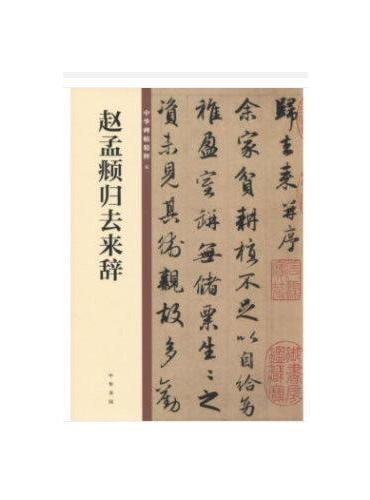 赵孟𫖯归去来辞
中华碑帖精粹
中华书局
歸去来并序
余家貧耕植不足以自給幼
稚盈室缾無儲粟生〻之
資未見其術親故多勸